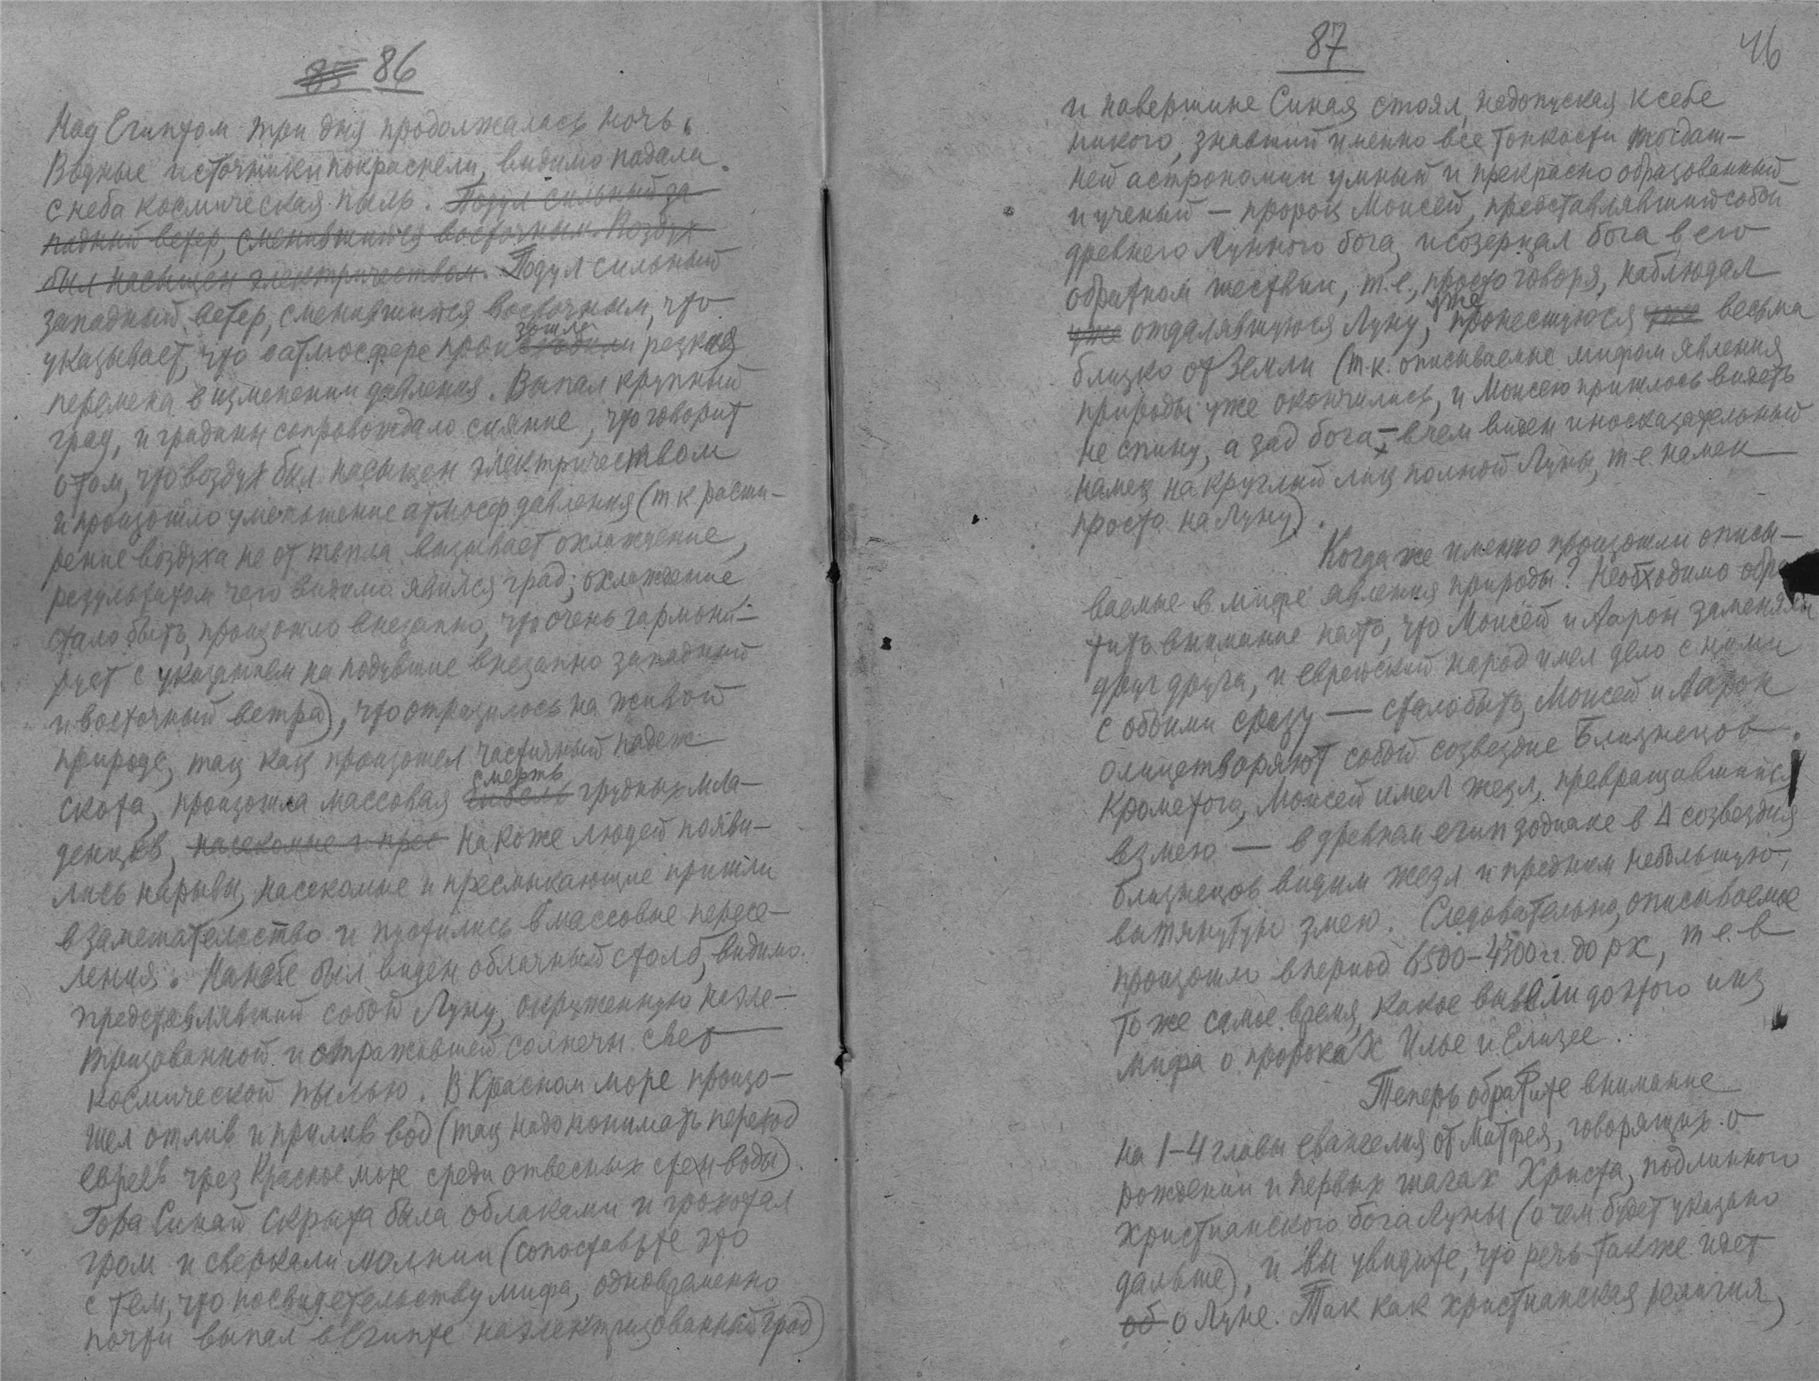 85 86
Над Египтом три дня продолжалась ночь.
Водные источники покраснели, видимо падали
с неба космическая пыль. Подул сильный за
падный ветер, сменившийся восточным. Воздух
был насыщен электричеством. Подул сильный
западный ветер, сменившийся восточным, что
указывает, что в атмосфере произошла резкая
перемена в изменении давления. Выпал крупный
град, и градины сопровождало сияние, что говорит
о том, что воздух был насыщен электричеством
и произошло уменьшение атмосф давления (т к расши-
рение воздуха не от тепла вызывает охлаждение,
результатом чего видимо явился град; охлаждение
стало быть, произошло внезапно, что очень гармони-
рует с указанием на подувшие внезапно западный
и восточный ветра), что отразилось на живой
природе, так как произошел частичный падеж
скота, произошла массовая гибель смерть грудных мла-
денцев, насекомые и прес на коже людей появи-
лись нарывы, насекомые и пресмыкающие пришли
в замешательство и пустились в массовые пересе-
ления. На небе был виден облачный столб, видимо
представлявший собой Луну, окруженную наэле-
тризованной и отражавшей солнечн. свет
космической пылью. В Красном море произо-
шел отлив и прилив вод (так надо понимать переход
евреев чрез Красное море среди отвесных стен воды).
Гора Синай скрыта была облаками и грохотал
гром и сверкали молнии (сопоставьте это
с тем, что по свидетельству мифа, одновременно
почти выпал в Египте наэлектризованный град)
87
46
и навершине Синая стоял, недопуская к себе
никого, знавший именно все тонкости тогдаш-
ней астрономии умный и прекрасно образованный
и ученый — пророк Моисей, представлявший собой
древнего Лунного бога, и созерцал бога в его
обратном шествии, т.е., просто говоря, наблюдал
уже отдалявшуюся Луну, уже пронесшуюся уже весьма
близко от Земли (т.к. описываемые мифом явления
природы уже окончились, и Моисею пришлось видеть
не спину, а зад бога, — в чем виден иносказательный
намек на круглый лик полной Луны, т.е. намек
просто на Луну).
Когда же именно произошли описы-
ваемые в мифе явления природы? Необходимо обра-
тить внимание на то, что Моисей и Аарон заменяли
друг друга, и еврейский народ имел дело с ними
с обоими сразу — стало быть, Моисей и Аарон
олицетворяют собой созвездие Близнецов.
Кроме того, Моисей имел жезл, превращавшийся
в змею — в древнем египт зодиаке в Δ созвездия
близнецов видим жезл и пред ним небольшую,
вытянутую змею. Следовательно, описываемое
произошло в период 6500-4300 гг. до рх, т е. в
то же самое время, какое вывели до этого из
мифа о пророках Илье и Елизее.
Теперь обратите внимание
на 1-4 главы евангелия от Матфея, говорящих о
рождении и первых шагах Христа, подлинного
христианского бога Луны (о чем будет указано
дальше), и вы увидите, что речь также идет
об о Луне. Так как христианская религия,